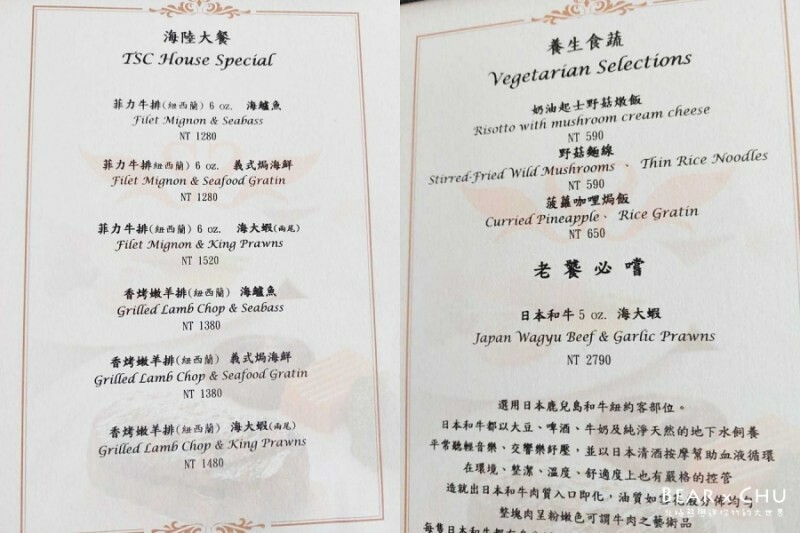 海陸大餐
TSC House Special
菲力牛排(紐西蘭) 6 oz. 海鱸魚
Filet Mignon & Seabass
NT 1280
菲力牛排(紐西蘭) 6 oz. 義式焗海鮮
Filet Mignon & Seafood Gratin
NT 1280
菲力牛排(紐西蘭) 6 oz. 海大蝦(兩尾)
Filet Mignon & King Prawns
NT 1520
香烤嫩羊排(紐西蘭) 海鱸魚
Grilled Lamb Chop & Seabass
NT 1380
香烤嫩羊排(紐西蘭) 義式焗海鮮
Grilled Lamb Chop & Seafood Gratin
NT 1380
香烤嫩羊排(紐西蘭) 海大蝦(兩尾)
Grilled Lamb Chop & King Prawns
NT 1480
養生食蔬
Vegetarian Selections
奶油起士野菇燉飯
Risotto with mushroom cream cheese
NT 590
野菇麵線
Stirred-Fried Wild Mushrooms、 Thin Rice Noodles
NT 590
菠蘿咖哩焗飯
Curried Pineapple、 Rice Gratin
NT 650
老饕必嚐
日本和牛 5 oz. 海大蝦
Japan Wagyu Beef & Garlic Prawns
NT 2790
選用日本鹿兒島和牛紐約客部位。
日本和牛都以大豆、啤酒、牛奶及純淨天然的地下水飼養
平常聽輕音樂、交響樂紓壓，並以日本清酒按摩幫助血液循環
在環境、整潔、溫度、舒適度上也有嚴格的控管
造就出日本和牛肉質入口即化，油質如雪花般分佈均勻
整塊肉呈粉嫩色可謂牛肉之藝術品
每隻日本和牛都有
BEAR x CHU